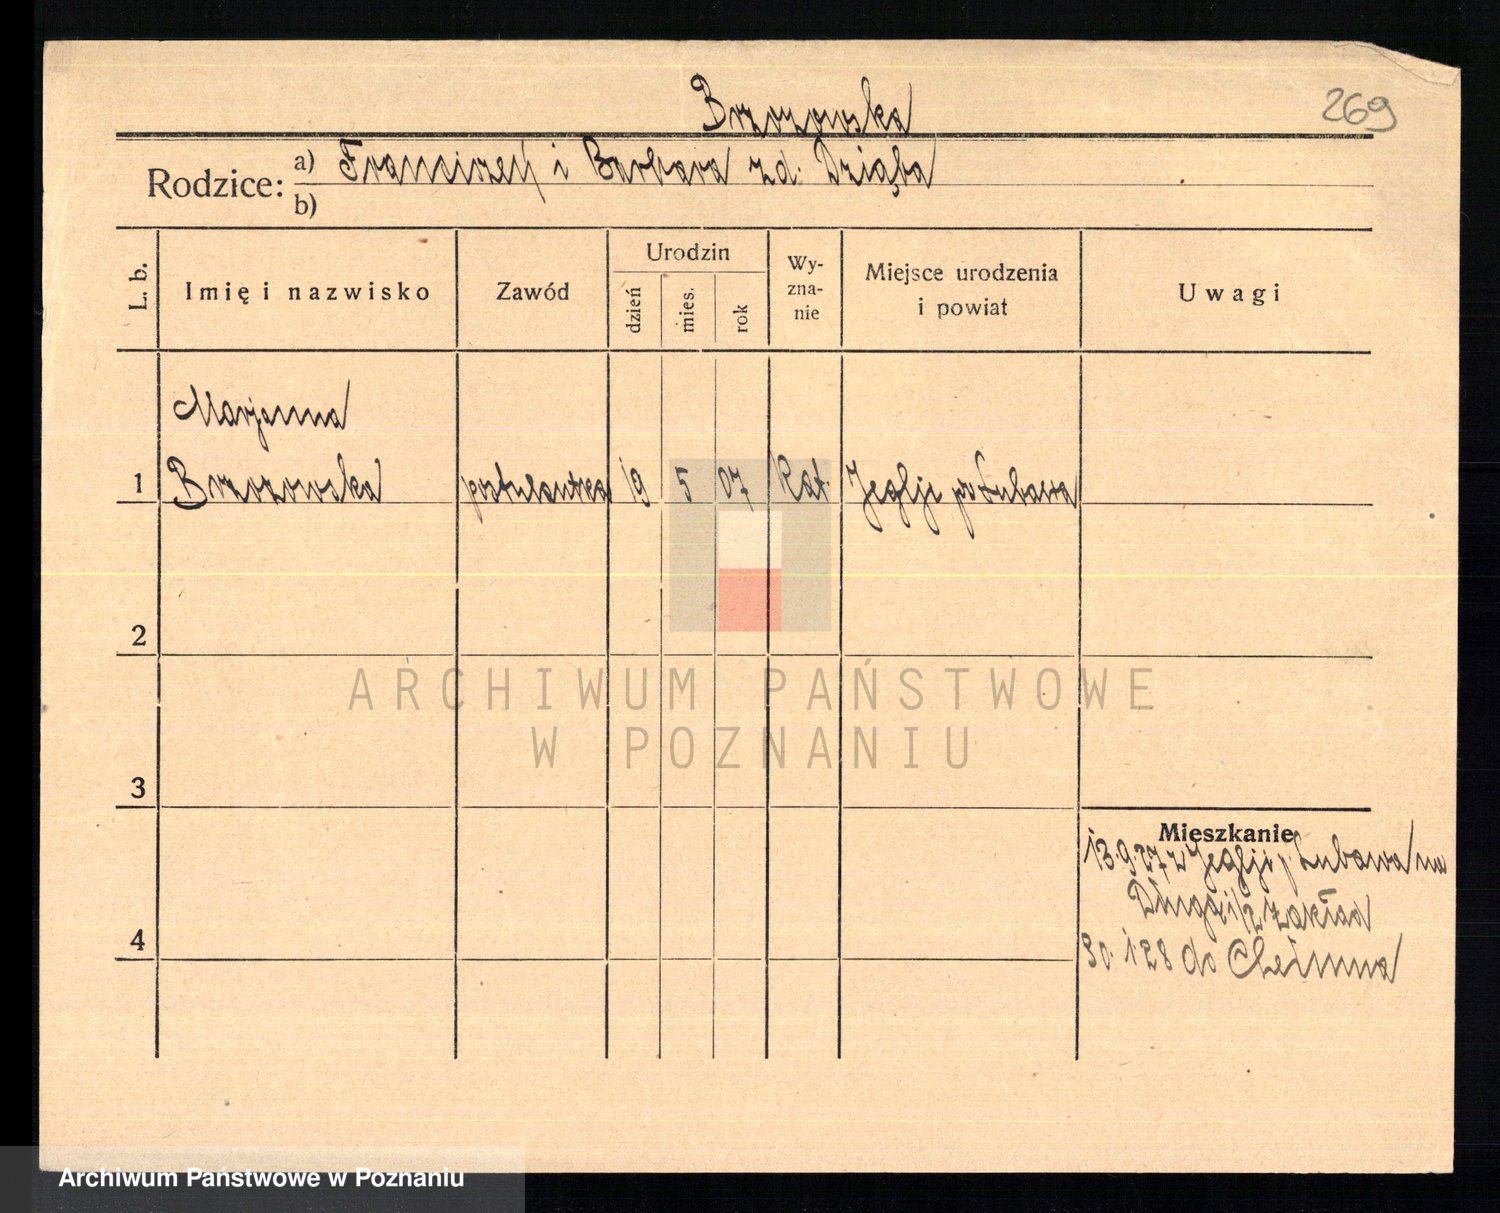 Brzozowska
269
Rodzice: a) Franciszek i Barbara zd. Dziąba
b)
L. b. Imię i nazwisko Zawód Urodzin dzień mies. rok Wyznanie Miejsce urodzenia i powiat Uwagi
Marjanna
1 Brzozowska postulantka 19 5 07 Kat. Jeglje p. Lubawa
2
ARCHIWUM PAŃSTWOWE
W POZNANIU
3
Mieszkanie
13.9.27 z Jeglji p. Lubawa na
Długą 1/2 zakład
4
30. 1 28 do Chełmna
Archiwum Państwowe w Poznaniu